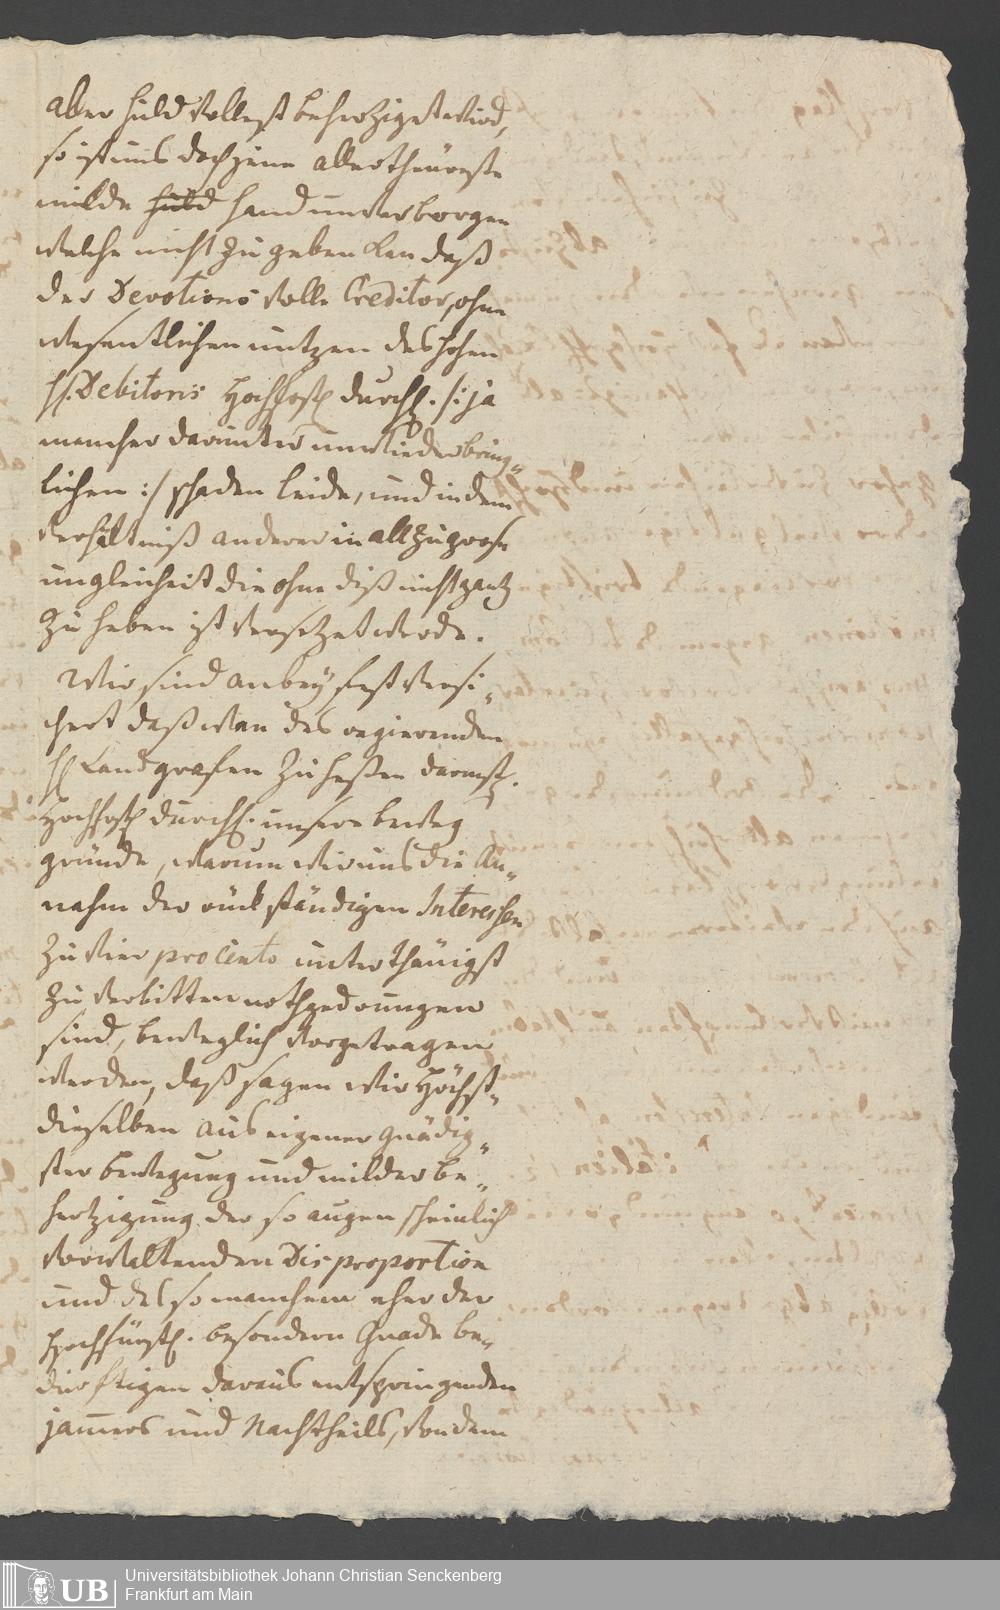 aber huld Vollest behertziget Wird,
so ist uns doch jene allertheureste
milde huld hand unverborgen
Welche nicht zu geben kan daß
der Devotions Volle Creditor, ohne
Wesentlichen nutzen des hohen
H. Debitoris Hochfrstl. Durchl. /: ja
mancher darunter unwiederbring„
lichen :/ schaden leide, und in dem
Verhältniß anderer in allzugrose
ungleichheit die ohne diß nicht gantz
zu heben ist Versetzet Werde.
Wir sind anbey fest Versi„
chert daß Wan des regierenden
H. Landgrafen zu Heßen Darmst.
Hochfrstl. Durchl. unsere beweg
gründe, Warum Wir uns die An„
nahm der rückständigen Interessen
zu Vier pro Cento unterthänigst
zu Verbitten nothgedrungen
sind, beweglich Vorgetragen
Werden, daß sagen Wir Höchst„
dieselben aus eigener Gnädig„
ster bewegung und milder be„
hertzigung der so augenscheinlich
Vorwaltenden Disproportion
und des so manchem aber der
Hochfürstl. besondern Gnade be„
dürftigen daraus entspringenden
jam̄ers und Nachtheils, Von dem
UB
Universitätsbibliothek Johann Christian Senckenberg
Frankfurt am Main